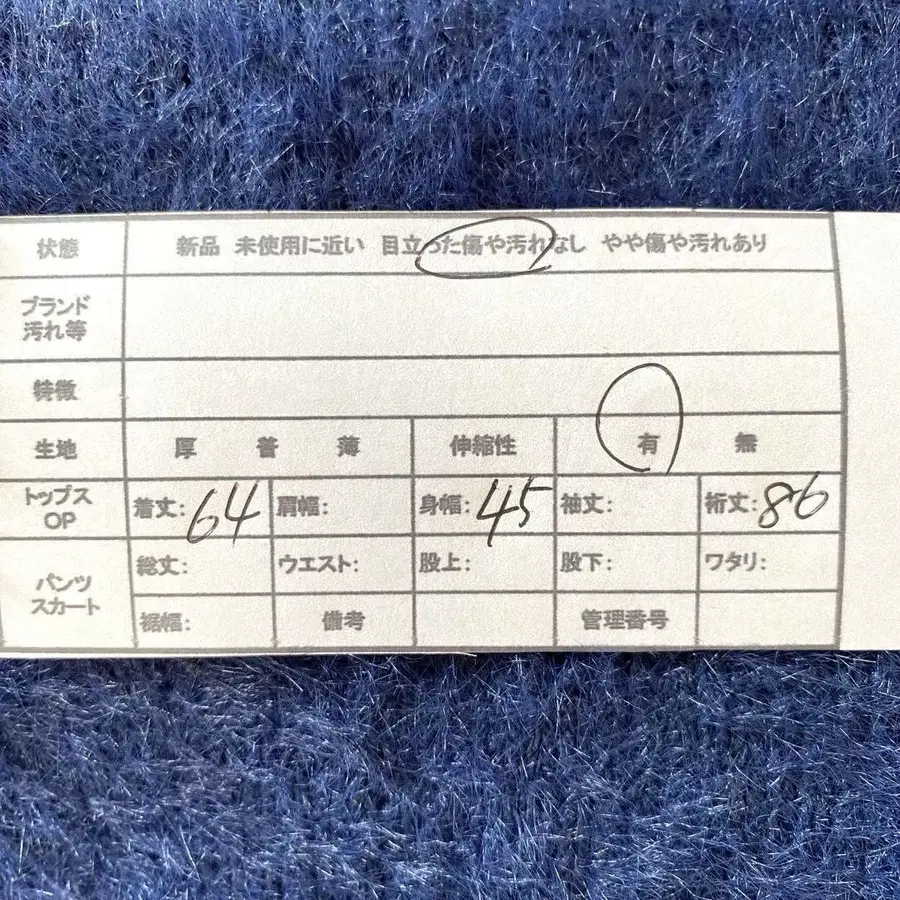 状態 新品 未使用に近い 目立った傷や汚れなし やや傷や汚れあり
ブランド
汚れ等
特徴
生地 厚 普 薄 伸縮性 有 無
トップス
OP
着丈: 64 肩幅: 身幅: 45 袖丈: 裄丈: 86
パンツ
スカート
総丈: ウエスト: 股上: 股下: ワタリ:
裾幅: 備考 管理番号